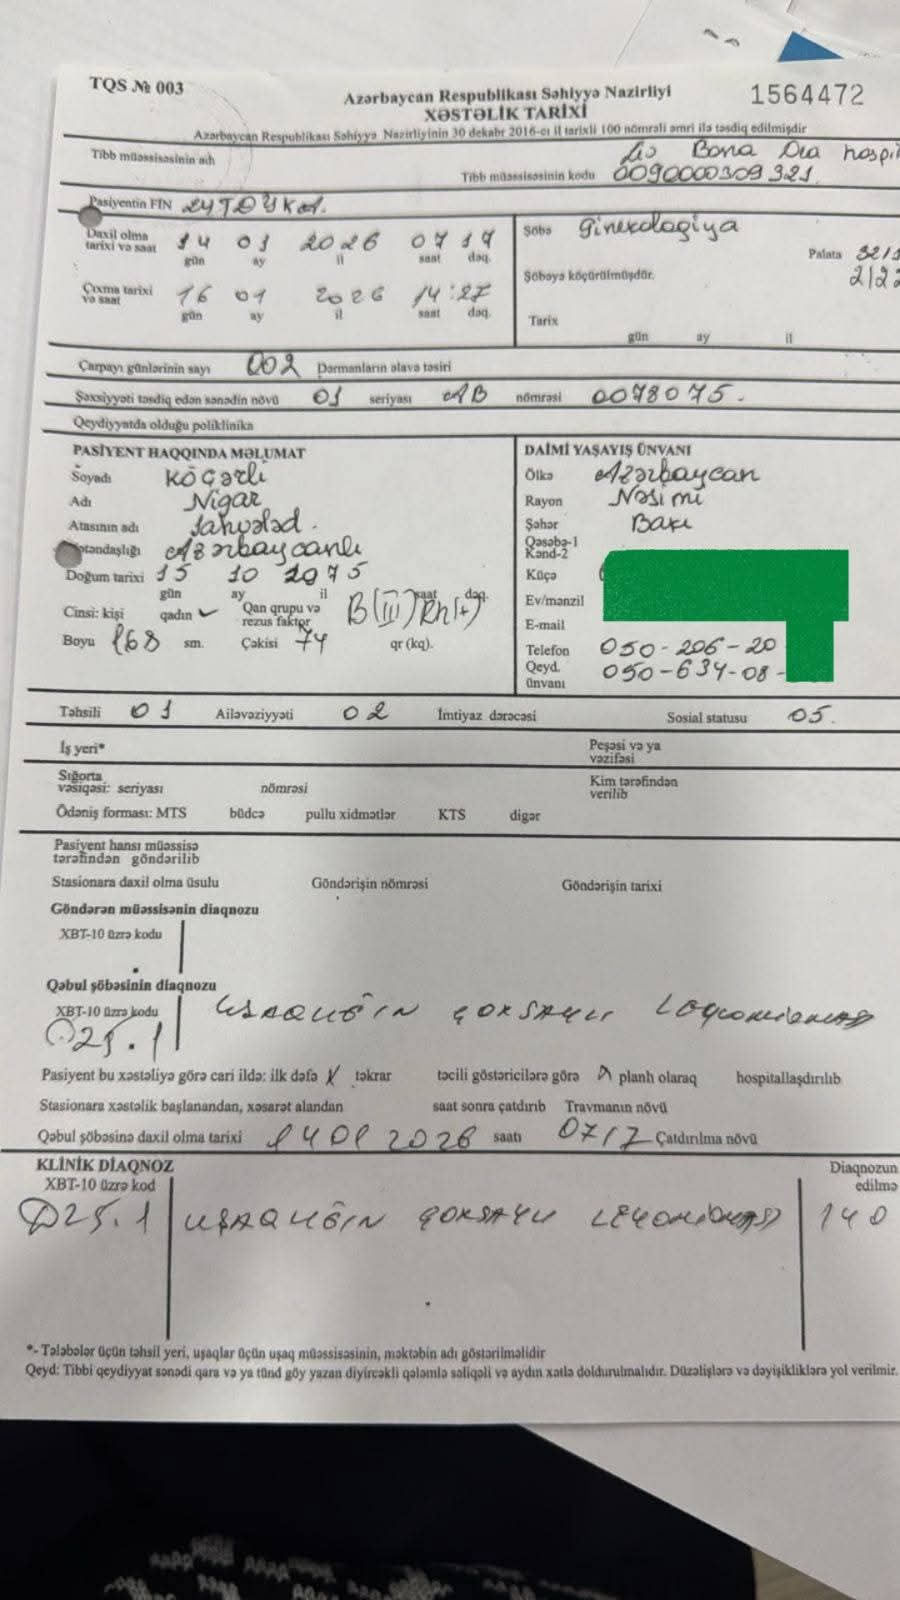 TQS № 003
Azərbaycan Respublikası Səhiyyə Nazirliyi
1564472
XƏSTƏLİK TARİXİ
Azərbaycan Respublikası Səhiyyə Nazirliyinin 30 dekabr 2016-cı il tarixli 100 nömrəli əmri ilə təsdiq edilmişdir
Tibb müəssisəsinin adı Bona Dea hospi
Tibb müəssisəsinin kodu 0090000309321
Pasiyentin FİN
Daxil olma tarixi və saat 14 01 2026 07 17
gün ay il saat dəq.
Çıxma tarixi və saat 16 01 2026 14:27
gün ay il saat dəq.
Şöbə Ginekologiya
Palata
Şöbəyə köçürülmüşdür.
Tarix
gün ay il
Çarpayı günlərinin sayı 002 Dərmanların əlavə təsiri
Şəxsiyyəti təsdiq edən sənədin növü 01 seriyası AB nömrəsi 0078075.
Qeydiyyatda olduğu poliklinika
PASİYENT HAQQINDA MƏLUMAT
Soyadı Köçərli
Adı Nigar
Atasının adı
Vətəndaşlığı Azərbaycanlı
Doğum tarixi 15 10 1975
gün ay il saat dəq.
Cinsi: kişi qadın ✓ Qan qrupu və rezus faktor B(III)Rh(+)
Boyu 168 sm. Çəkisi 74 qr (kq).
DAİMİ YAŞAYIŞ ÜNVANI
Ölkə Azərbaycan
Rayon Nəsimi
Şəhər Bakı
Qəsəbə-1
Kənd-2
Küçə
Ev/mənzil
E-mail
Telefon 050-206-20
Qeyd. ünvanı 050-634-08-
Təhsili 01 Ailəvəziyyəti 02 İmtiyaz dərəcəsi Sosial statusu 05.
İş yeri* Peşəsi və ya vəzifəsi
Sığorta vəsiqəsi: seriyası nömrəsi Kim tərəfindən verilib
Ödəniş forması: MTS büdcə pullu xidmətlər KTS digər
Pasiyent hansı müəssisə tərəfindən göndərilib
Stasionara daxil olma üsulu Göndərişin nömrəsi Göndərişin tarixi
Göndərən müəssisənin diaqnozu
XBT-10 üzrə kodu
Qəbul şöbəsinin diaqnozu
XBT-10 üzrə kodu
D25.1 UŞAQLIĞIN ÇOXSAYLI LEYOMİOMASI
Pasiyent bu xəstəliyə görə cari ildə: ilk dəfə təkrar təcili göstəricilərə görə planlı olaraq hospitallaşdırılıb
Stasionara xəstəlik başlanandan, xəsarət alandan saat sonra çatdırıb Travmanın növü
Qəbul şöbəsinə daxil olma tarixi 14 01 2026 saatı 0717 Çatdırılma növü
KLİNİK DİAQNOZ
XBT-10 üzrə kod
Diaqnozun
edilmə
D25.1 UŞAQLIĞIN ÇOXSAYLI LEYOMİOMASI 140
*- Tələbələr üçün təhsil yeri, uşaqlar üçün uşaq müəssisəsinin, məktəbin adı göstərilməlidir
Qeyd: Tibbi qeydiyyat sənədi qara və ya tünd göy yazan diyircəkli qələmlə səliqəli və aydın xətlə doldurulmalıdır. Düzəlişlərə və dəyişikliklərə yol verilmir.